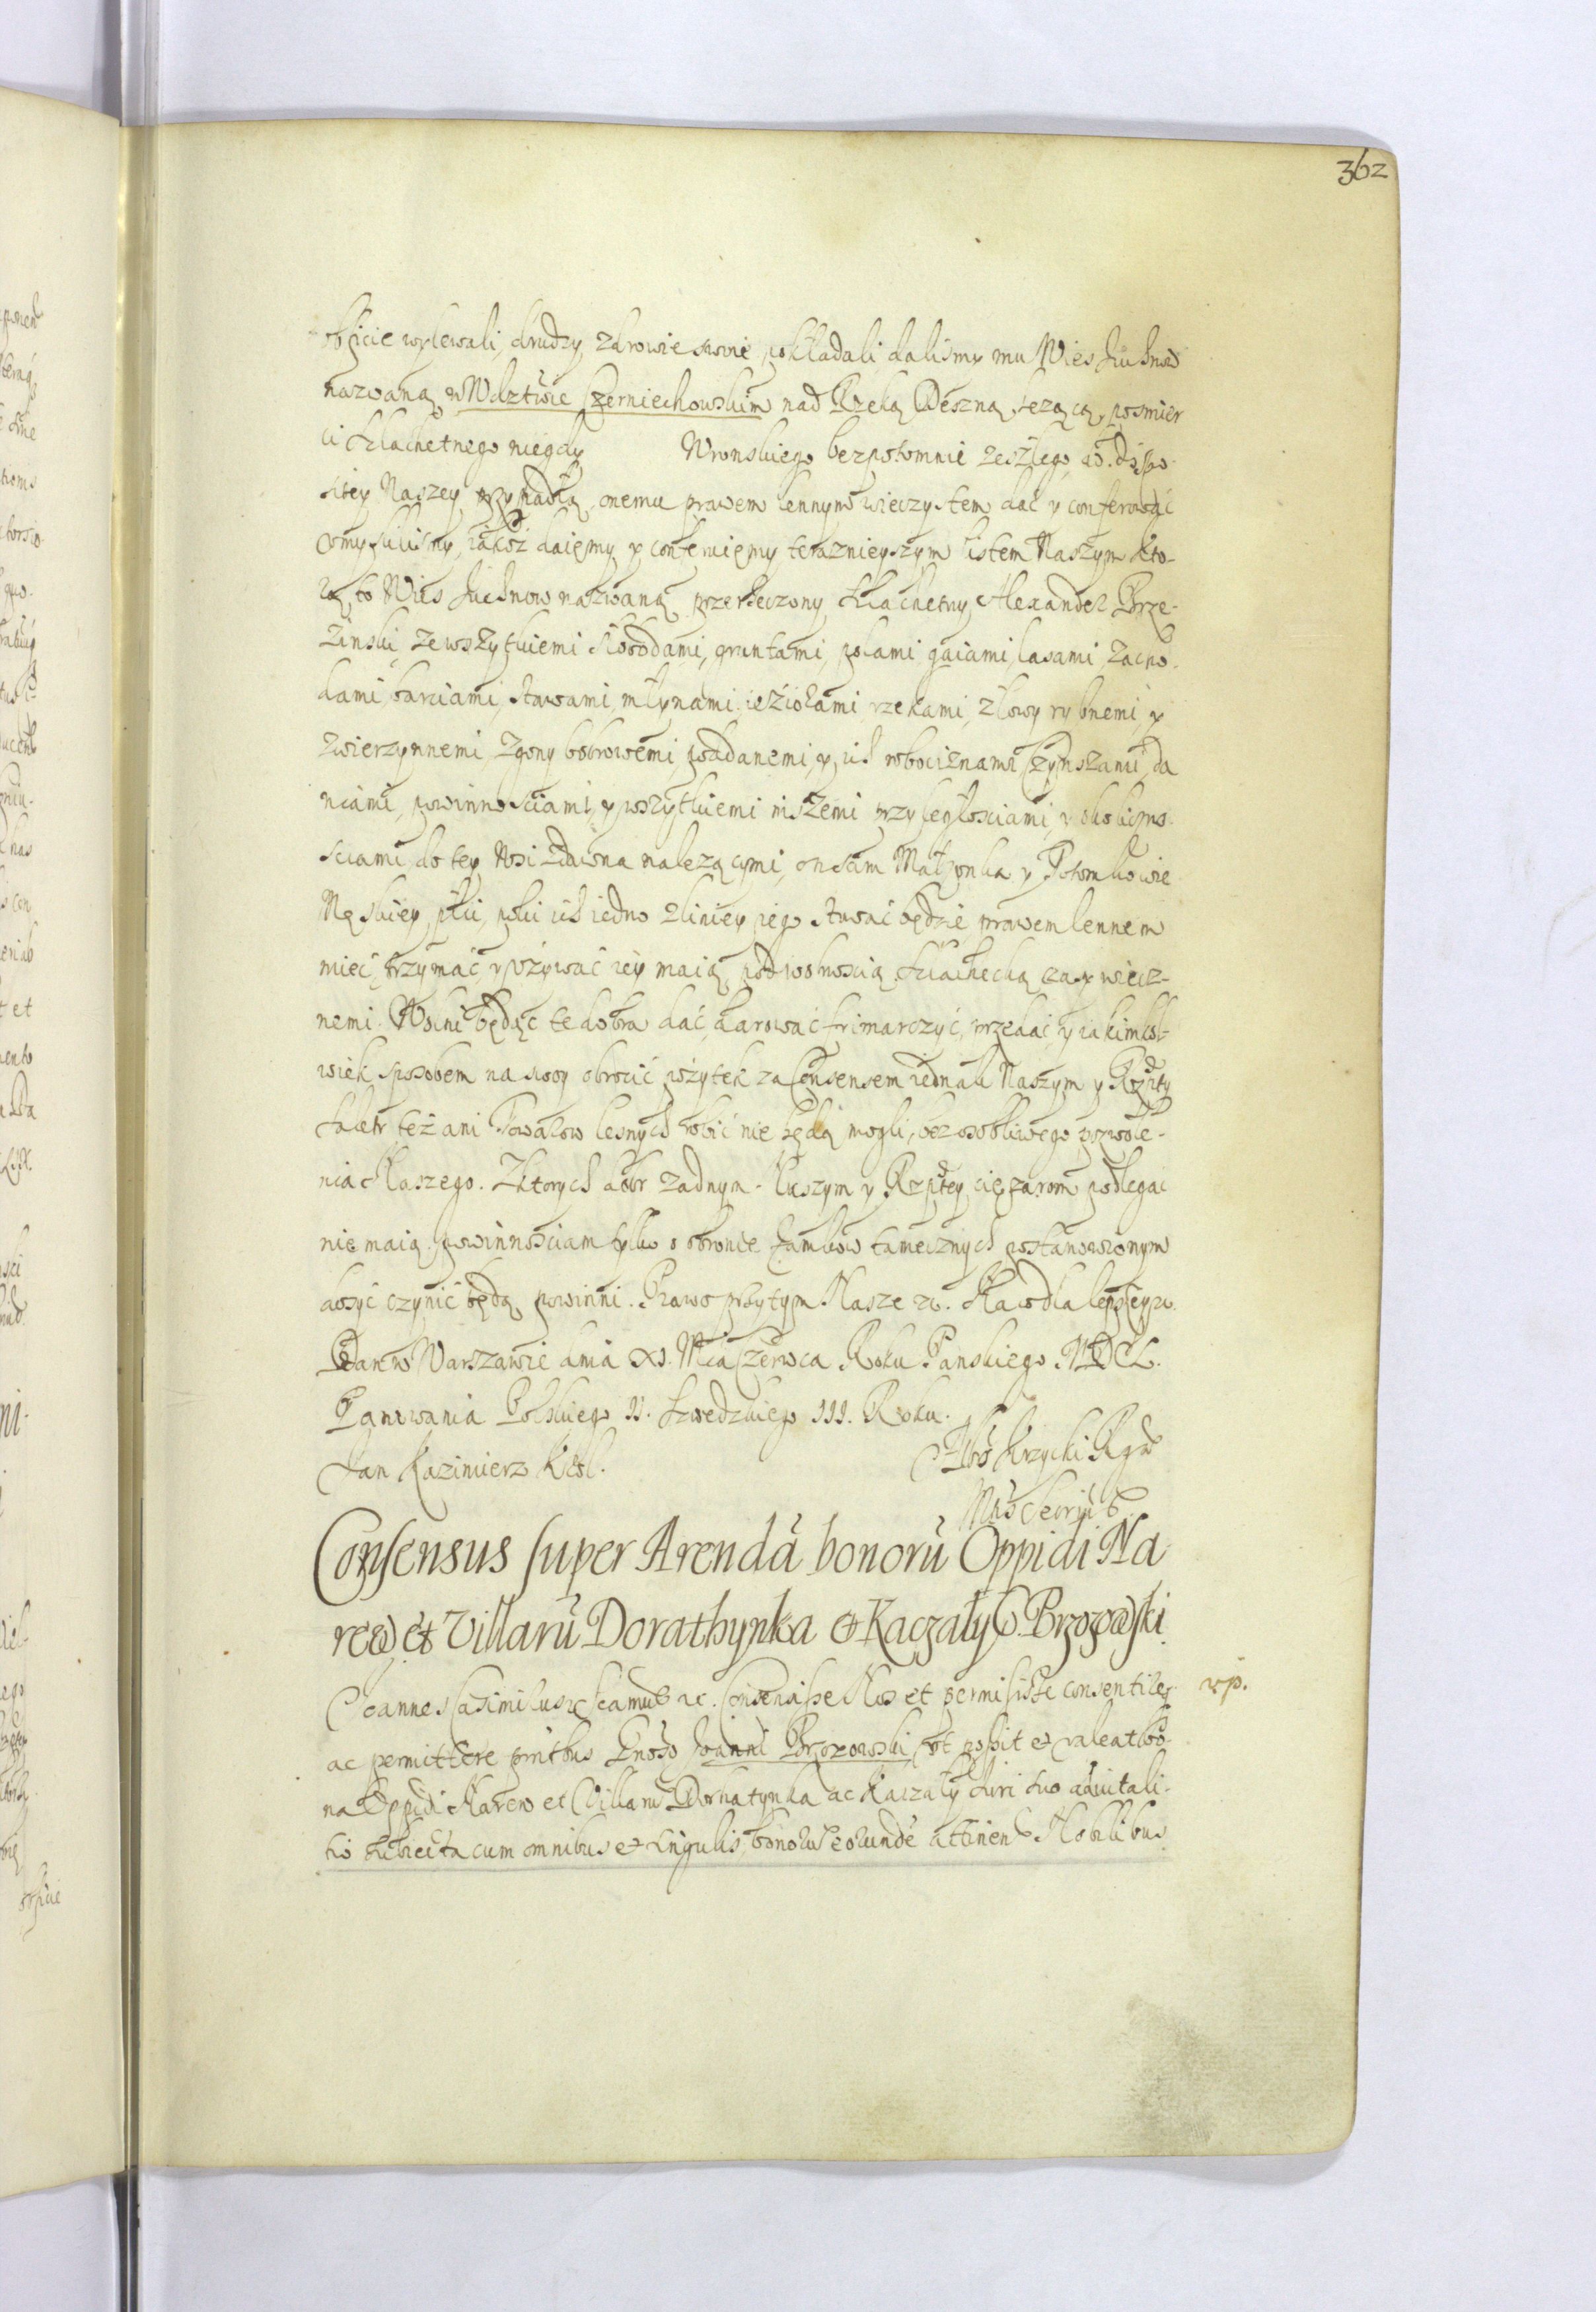 362
obficie wylewali, drudzy zdrowie swoie pokładali daliśmy mu Wieś Juchnow
nazwaną w Wdztwie Czerniechowskim nad Rzeką Deszną leżącą, po smier
ci szlachetnego niegdy Wronskiego bezpotomnie zeszłego, do dispo
sitiey Naszey przypadłą, onemu prawem lennym wieczystem dać y conferować
umyslilismy, iakoż daiemy y conferuiemy teraznieyszym listem Naszym kto-
rą to Wieś Juchnow nazwaną przerzeczony szlachetny Alexander Brze-
zinski, ze wszytkiemi słobodami, gruntami, polami gaiami, lasami, zacho-
dami, barciami, stawami, młynami, ieziorami, rzekami, z łowy rybnemi, y
zwierzynnemi, z gony bobrowemi, poddanemi, y ich robociznami Czynszami, da
niami, powinnosciami, y wszytkiemi inszemi przyległosciami, y okoliczno
sciami do tey Wsi zdawna należącymi, on sam Małżonka y Potomkowie
Męskiey płci, poki ich iedno z liniey iego stawać będzie prawem lennem
mieć, trzymać y używać iey maią, pod wolnoscią szlachecką czasy wiecz-
nemi. Wolni będąc te dobra dać, darować frimarczyć, przedać, y iakimkol-
wiek sposobem na swoy obrocić pożytek za Consensem iednak Naszym y Rzptey
Saletr też ani Towarow lesnych robić nie będą mogli, bez osobliwego pozwole-
nia Naszego. Z ktorych dobr żadnym Naszym y Rzptey ciężarom podlegać
nie maią, powinnosciam tylko o obronie Zamkow tamecznych postanowionym
dosyć czynić będą powinni. Prawo przytym Nasze etc. Na co dla lepszey etc.
Dan w Warszawie dnia XI. Mca Czerwca Roku Panskiego MDCL.
Panowania Polskiego II. Szwedzkiego III. Roku.
Jan Kazimierz Krol. Krzycki Rgni
Consensus super Arendā bonorū Oppidi Na
rew et Villarū Dorathynka et Kaczały G. Brzozowski
Joannes Casimirus etc. Significamus etc. Consensisse Nos et permisisse consentireq
ac permittere pntbus Gnoso Joanni Brzozowski, ut possit et valeat bo-
na Oppidi Narew et Villarū Dorhatynka ac Kaczały Juri suo advitali-
tio subiecta cum omnibus et singulis, bonorū eorundē attinen. Nobilibus
rp.